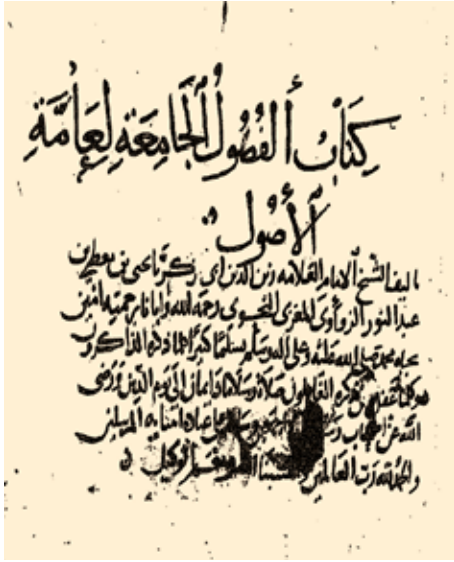 كتاب الفصول الجامعة لعامة
الأصول
تاليف الشيخ الامام العلامه زين الدين ابي زكريا يحيى بن معطي بن
عبد النور الزواوي المغربي النحوي رحمه الله وايانا برحمته امين
بجاه محمد صلى الله عليه وعلى اله وسلم تسليما كثيرا كلما ذكره الذاكرون
وكلما غفل عن ذكره الغافلون صلاة وسلاما دايمان الى يوم الدين ورضى
الله عن اصحاب
والحمد لله رب العالمين وحسبنا الله ونعم الوكيل